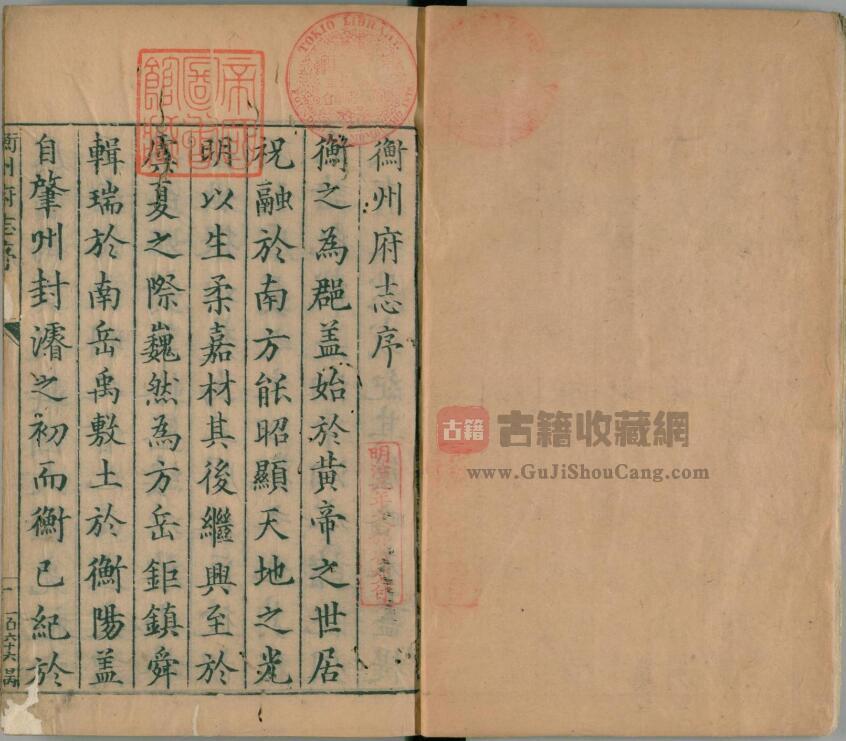 衡州府志序
衡之為郡盖始於黄帝之世居
祝融於南方能昭顯天地之光
明以生柔嘉材其後繼興至於
虞夏之際巍然為方岳鉅鎮舜
輯瑞於南岳禹敷土於衡陽盖
自肇州封濬之初而衡已紀於
衡州府志序
一百六十六
TOKIO LIBRARY
帝國圖書館藏
明治
古籍
古籍收藏網
www.GuJiShouCang.com